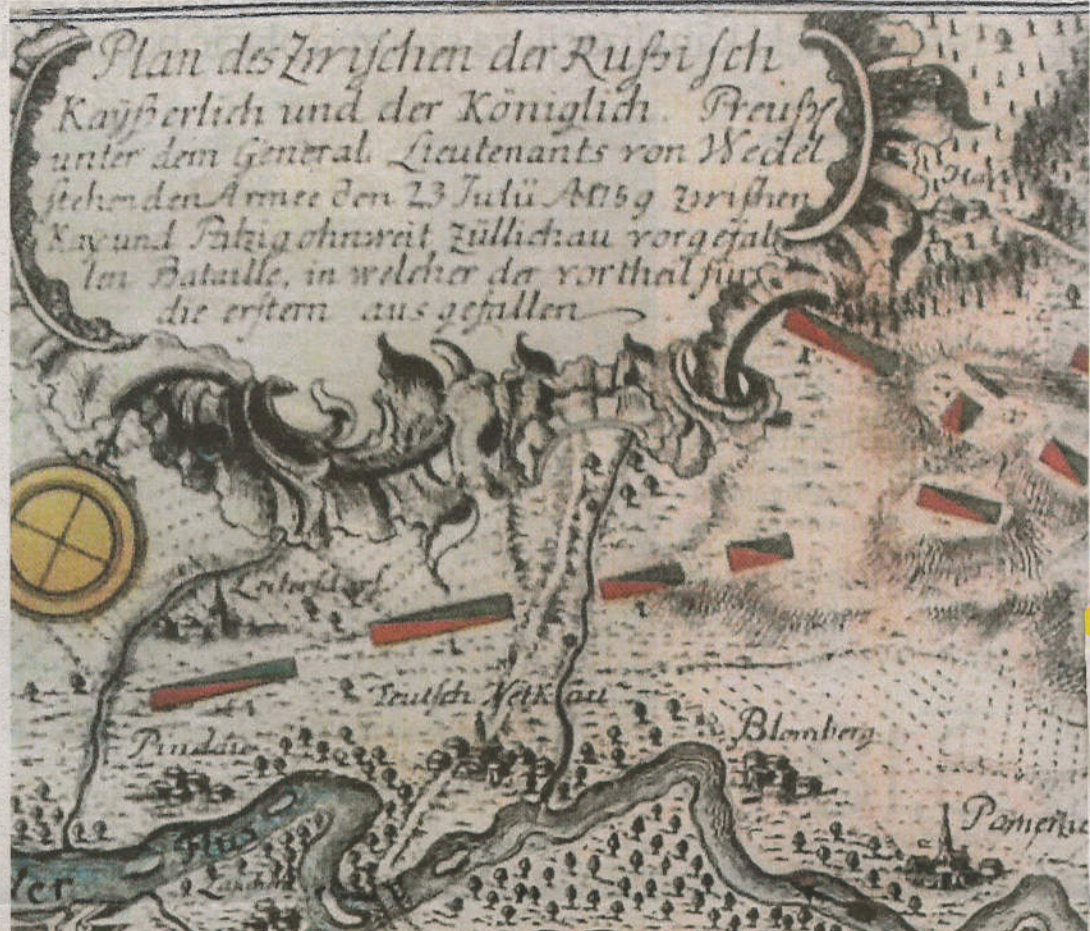 Plan des Zwischen der Rußisch
Kayßerlich und der Königlich Preuß
unter dem General Lieutenants von Wedel
stehenden Armee den 23 Julii A 1759 zwischen
Kay und Paltzig ohnweit Züllichau vorgefal
len Bataille, in welcher der vortheil für
die erstern aus gefallen
Leitersdorf
Teutsch Netkau
Pindau
Blomberg
Pomer
Flus
der